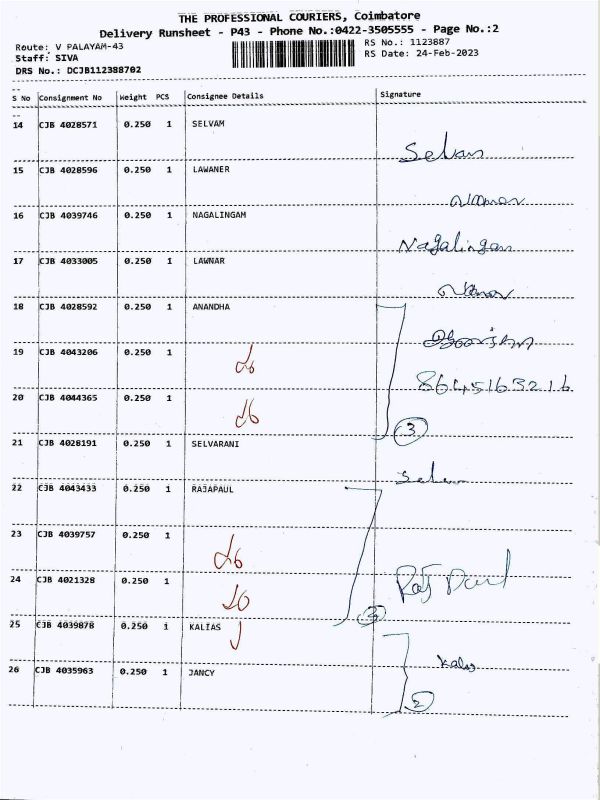 THE PROFESSIONAL COURIERS, Coimbatore
Delivery Runsheet - P43 - Phone No.:0422-3505555 - Page No.:2
Route: V PALAYAM-43 RS No.: 1123887
Staff: SIVA RS Date: 24-Feb-2023
DRS No.: DCJB112388702
S No Consignment No Weight PCS Consignee Details Signature
14 CJB 4028571 0.250 1 SELVAM
Selvam
15 CJB 4028596 0.250 1 LAWANER
16 CJB 4039746 0.250 1 NAGALINGAM
Nagalingam
17 CJB 4033005 0.250 1 LAWNAR
18 CJB 4028592 0.250 1 ANANDHA
19 CJB 4043206 0.250 1
8645163216
20 CJB 4044365 0.250 1
3
21 CJB 4028191 0.250 1 SELVARANI
22 CJB 4043433 0.250 1 RAJAPAUL
23 CJB 4039757 0.250 1
24 CJB 4021328 0.250 1
Raj Paul
3
25 CJB 4039878 0.250 1 KALIAS
26 CJB 4035963 0.250 1 JANCY
2